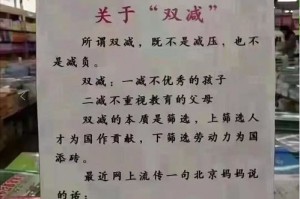 关于“双减”
所谓双减，既不是减压，也不
是减负。
双减：一减不优秀的孩子
二减不重视教育的父母
双减的本质是筛选，上筛选人
才为国作贡献，下筛选劳动力为国
添砖。
最近网上流传一句北京妈妈说
的话：